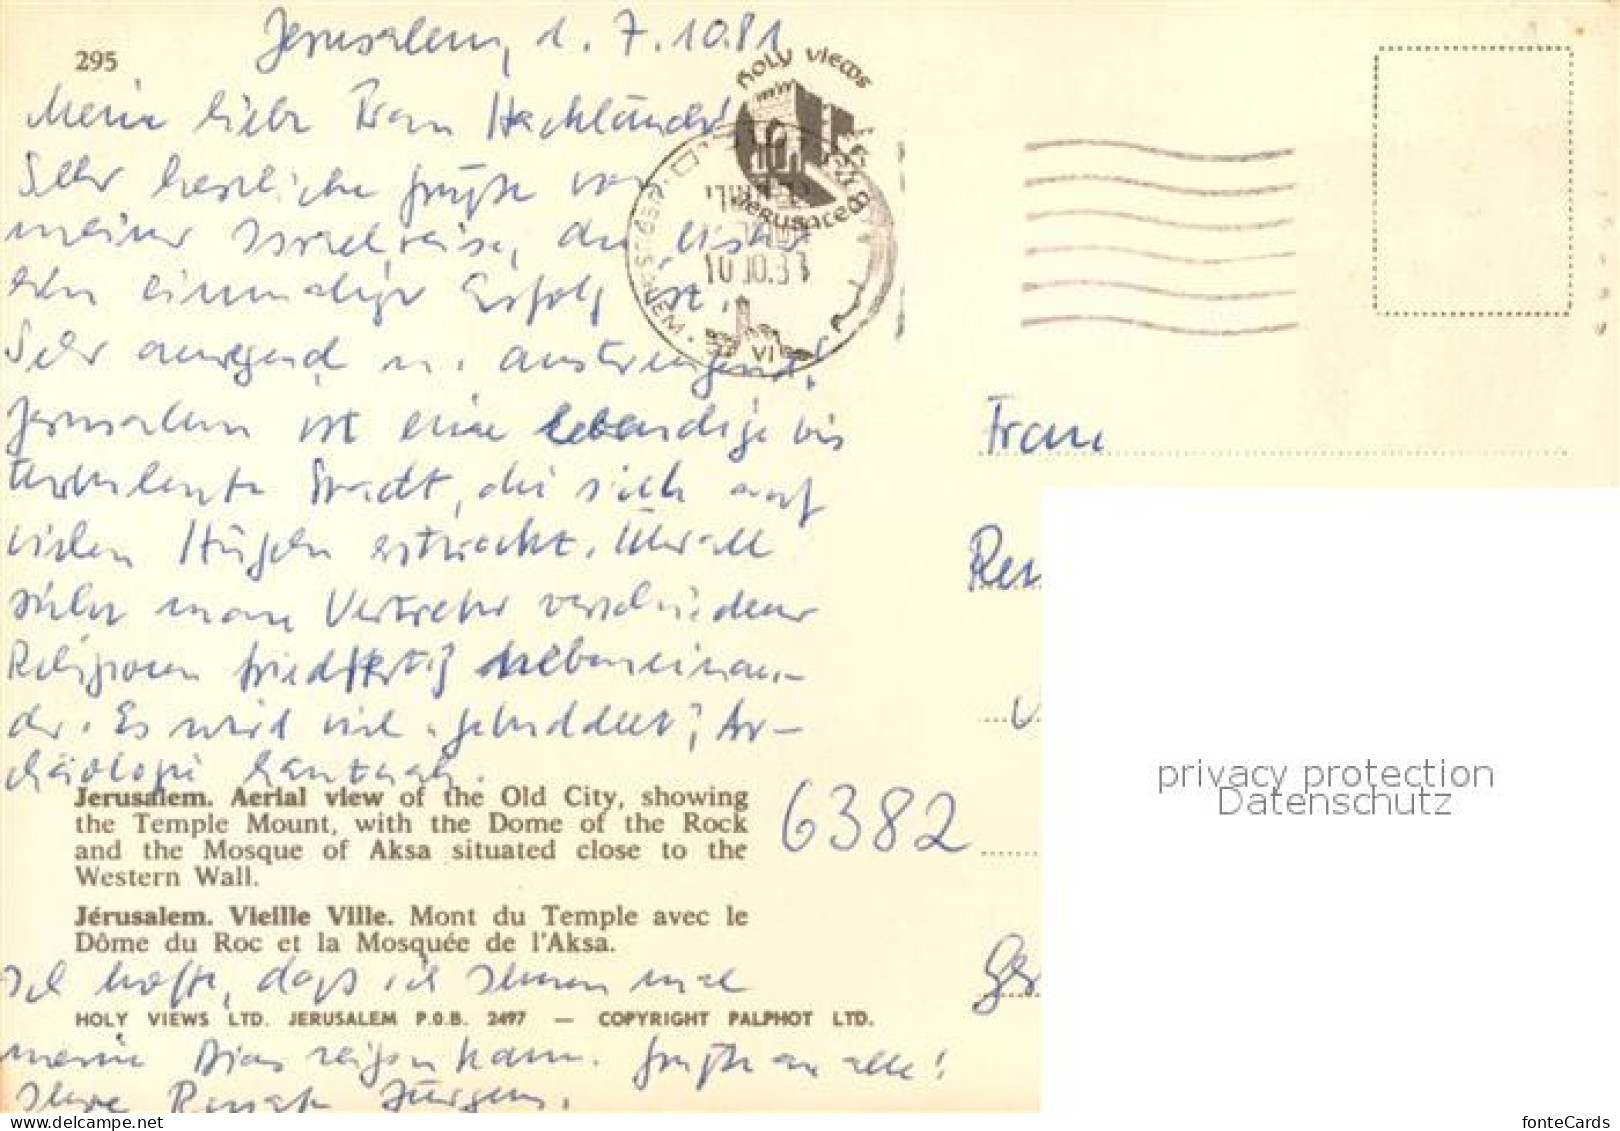 Jerusalem, 1.7.10.81
295
HOLY VIEWS
JERUSALEM
Meine liebe Frau Hachländer!
Sehr herzliche Grüße von
meiner Israelreise, die bisher
ein einmaliger Erfolg ist.
Sehr anregend u. anstrengend!
Jerusalem ist eine lebendige bis
turbulente Stadt, die sich auf
vielen Hügeln erstreckt. Überall
sieht man Vertreter verschiedener
Religionen friedfertig nebeneinan-
der. Es wird viel "gebuddelt", Ar-
chäologie hautnah.
Jerusalem. Aerial view of the Old City, showing
the Temple Mount, with the Dome of the Rock
and the Mosque of Aksa situated close to the
Western Wall.
Jérusalem. Vieille Ville. Mont du Temple avec le
Dôme du Roc et la Mosquée de l'Aksa.
Ich hoffe, daß ich Ihnen mal
HOLY VIEWS LTD. JERUSALEM P.O.B. 2497 — COPYRIGHT PALPHOT LTD.
meine Dias zeigen kann. Grüße an alle!
Ihre Renate Jürgens.
VI
Frau
6382
privacy protection
Datenschutz
fonteCards